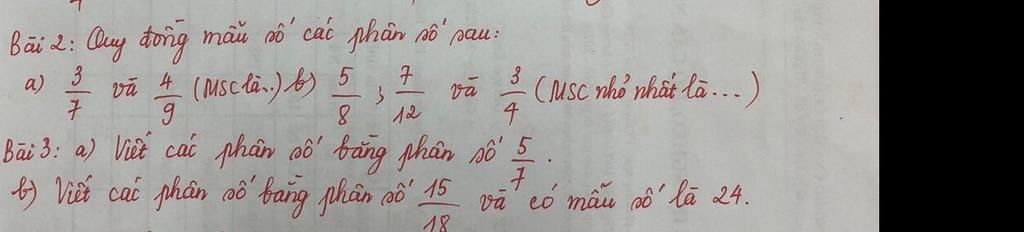 Bài 2: Quy đồng mẫu số các phân số sau:
a) 3/7 và 4/9 (MSC là..) b) 5/8 ; 7/12 và 3/4 (MSC nhỏ nhất là...)
Bài 3: a) Viết các phân số bằng phân số 5/7.
b) Viết các phân số bằng phân số 15/18 và có mẫu số là 24.